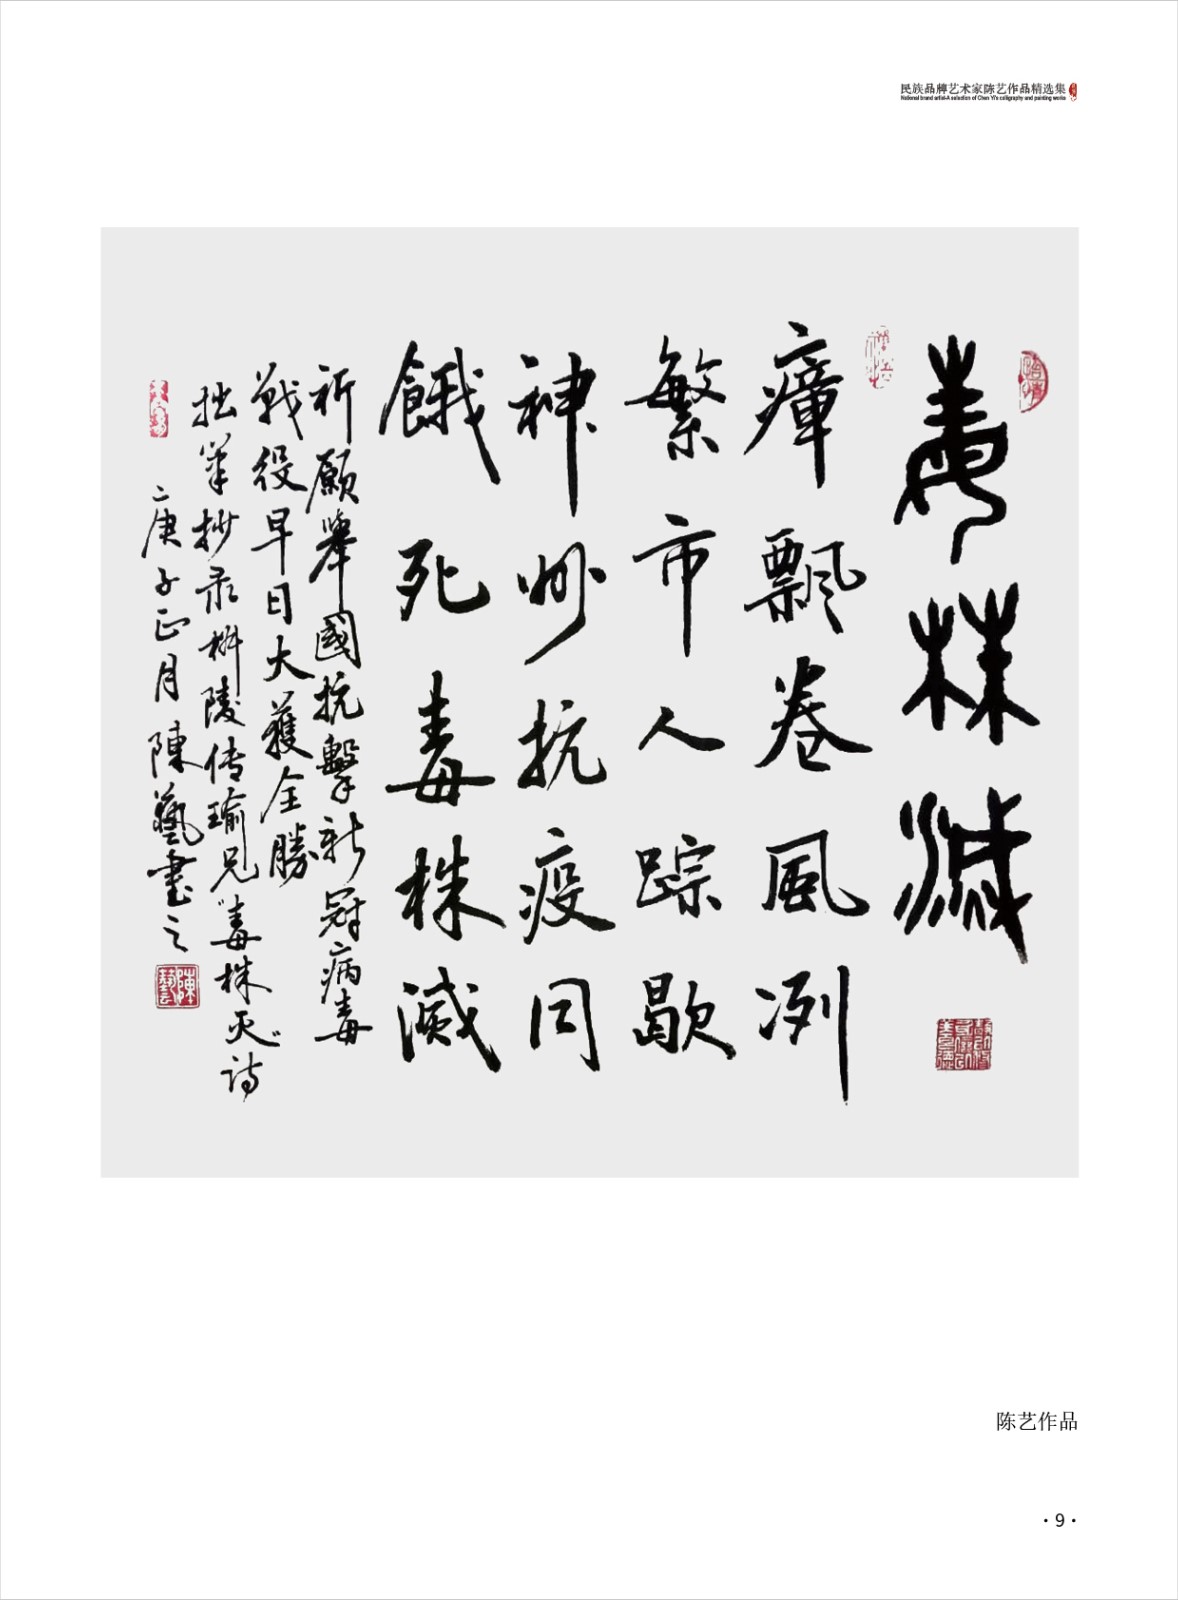 民族品牌艺术家陈艺作品精选集
National brand artist-A selection of Chen Yi's calligraphy and painting works
毒株滅
瘴飄卷風冽
繁市人踪歇
神州抗疫同
餓死毒株滅
祈願舉國抗擊新冠病毒
戰役早日大獲全勝
拙筆抄录桝陵传瑜兄“毒株灭”诗
庚子正月陳藝書之
陳藝
陈艺作品
·9·